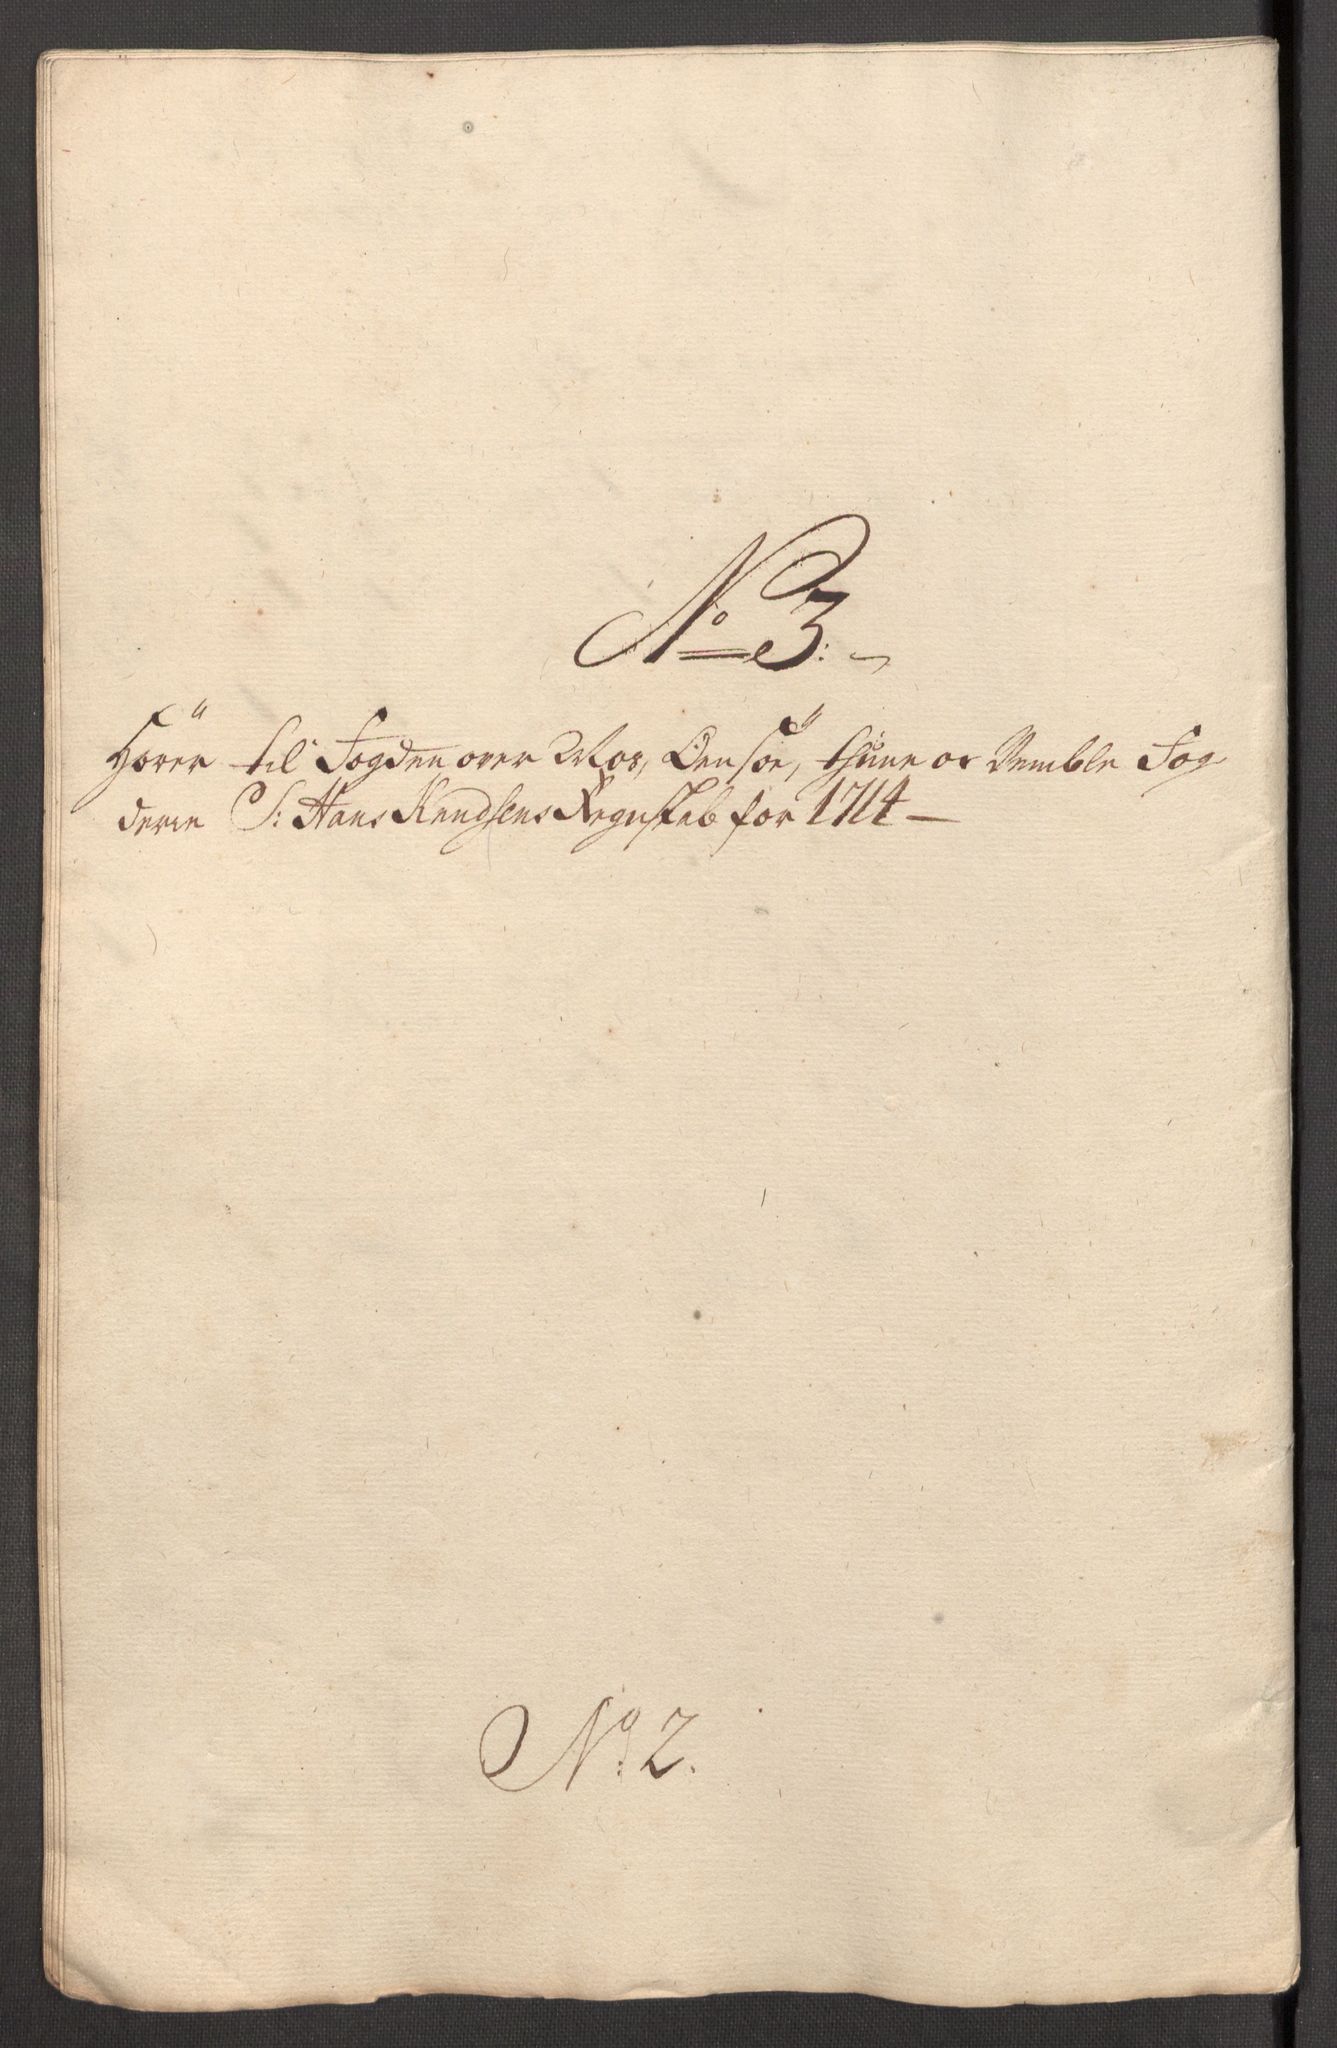 No 3:
Hörer til Fogden over Mos, Onsöe, thune oc Vemble Fog
derie S: Hans Knudsens Regnskab for 1714 —
No: 2.